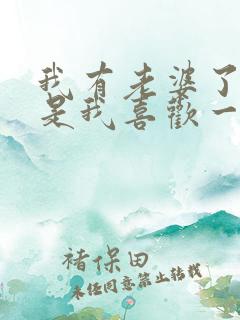 我有老婆了
是我喜歡一
褚保田
未经同意禁止转载